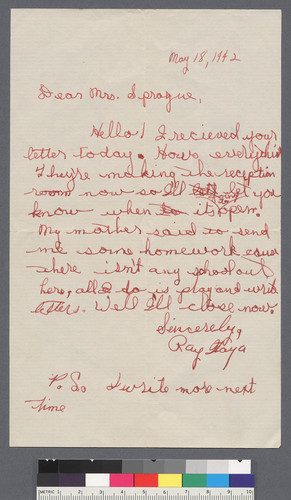 May 18, 1942
Dear Mrs. Sprague,
Hello! I recieved your
letter today. Hows everything
They're making the reception
room now so I'll let you
know when it's open.
My mother said to send
me some homework cause
there isn't any school out
here, all I do is play and write
letters. Well I'll close now.
Sincerely,
Ray
P. S. I write more next
time
METRIC 1 2 3 4 5 6 7 8 9 10